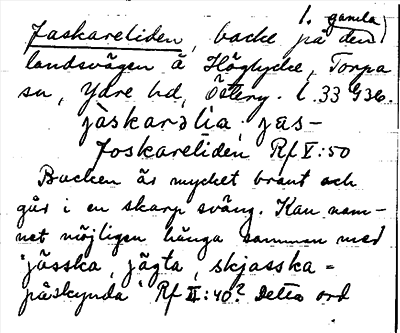 1. gamla
Jaskareliden, backe på den
landsvägen å Höglycke, Torpa
sn, Ydre hd, Östery. l. 33 936.
jàskarəlia, jas-
Joskareliden Rf V:50
Backen är mycket brant och
går i en skarp sväng. Kan nam-
net möjligen hänga samman med
"jässka, jägta, skjasska =
påskynda" Rf II:40? Detta ord